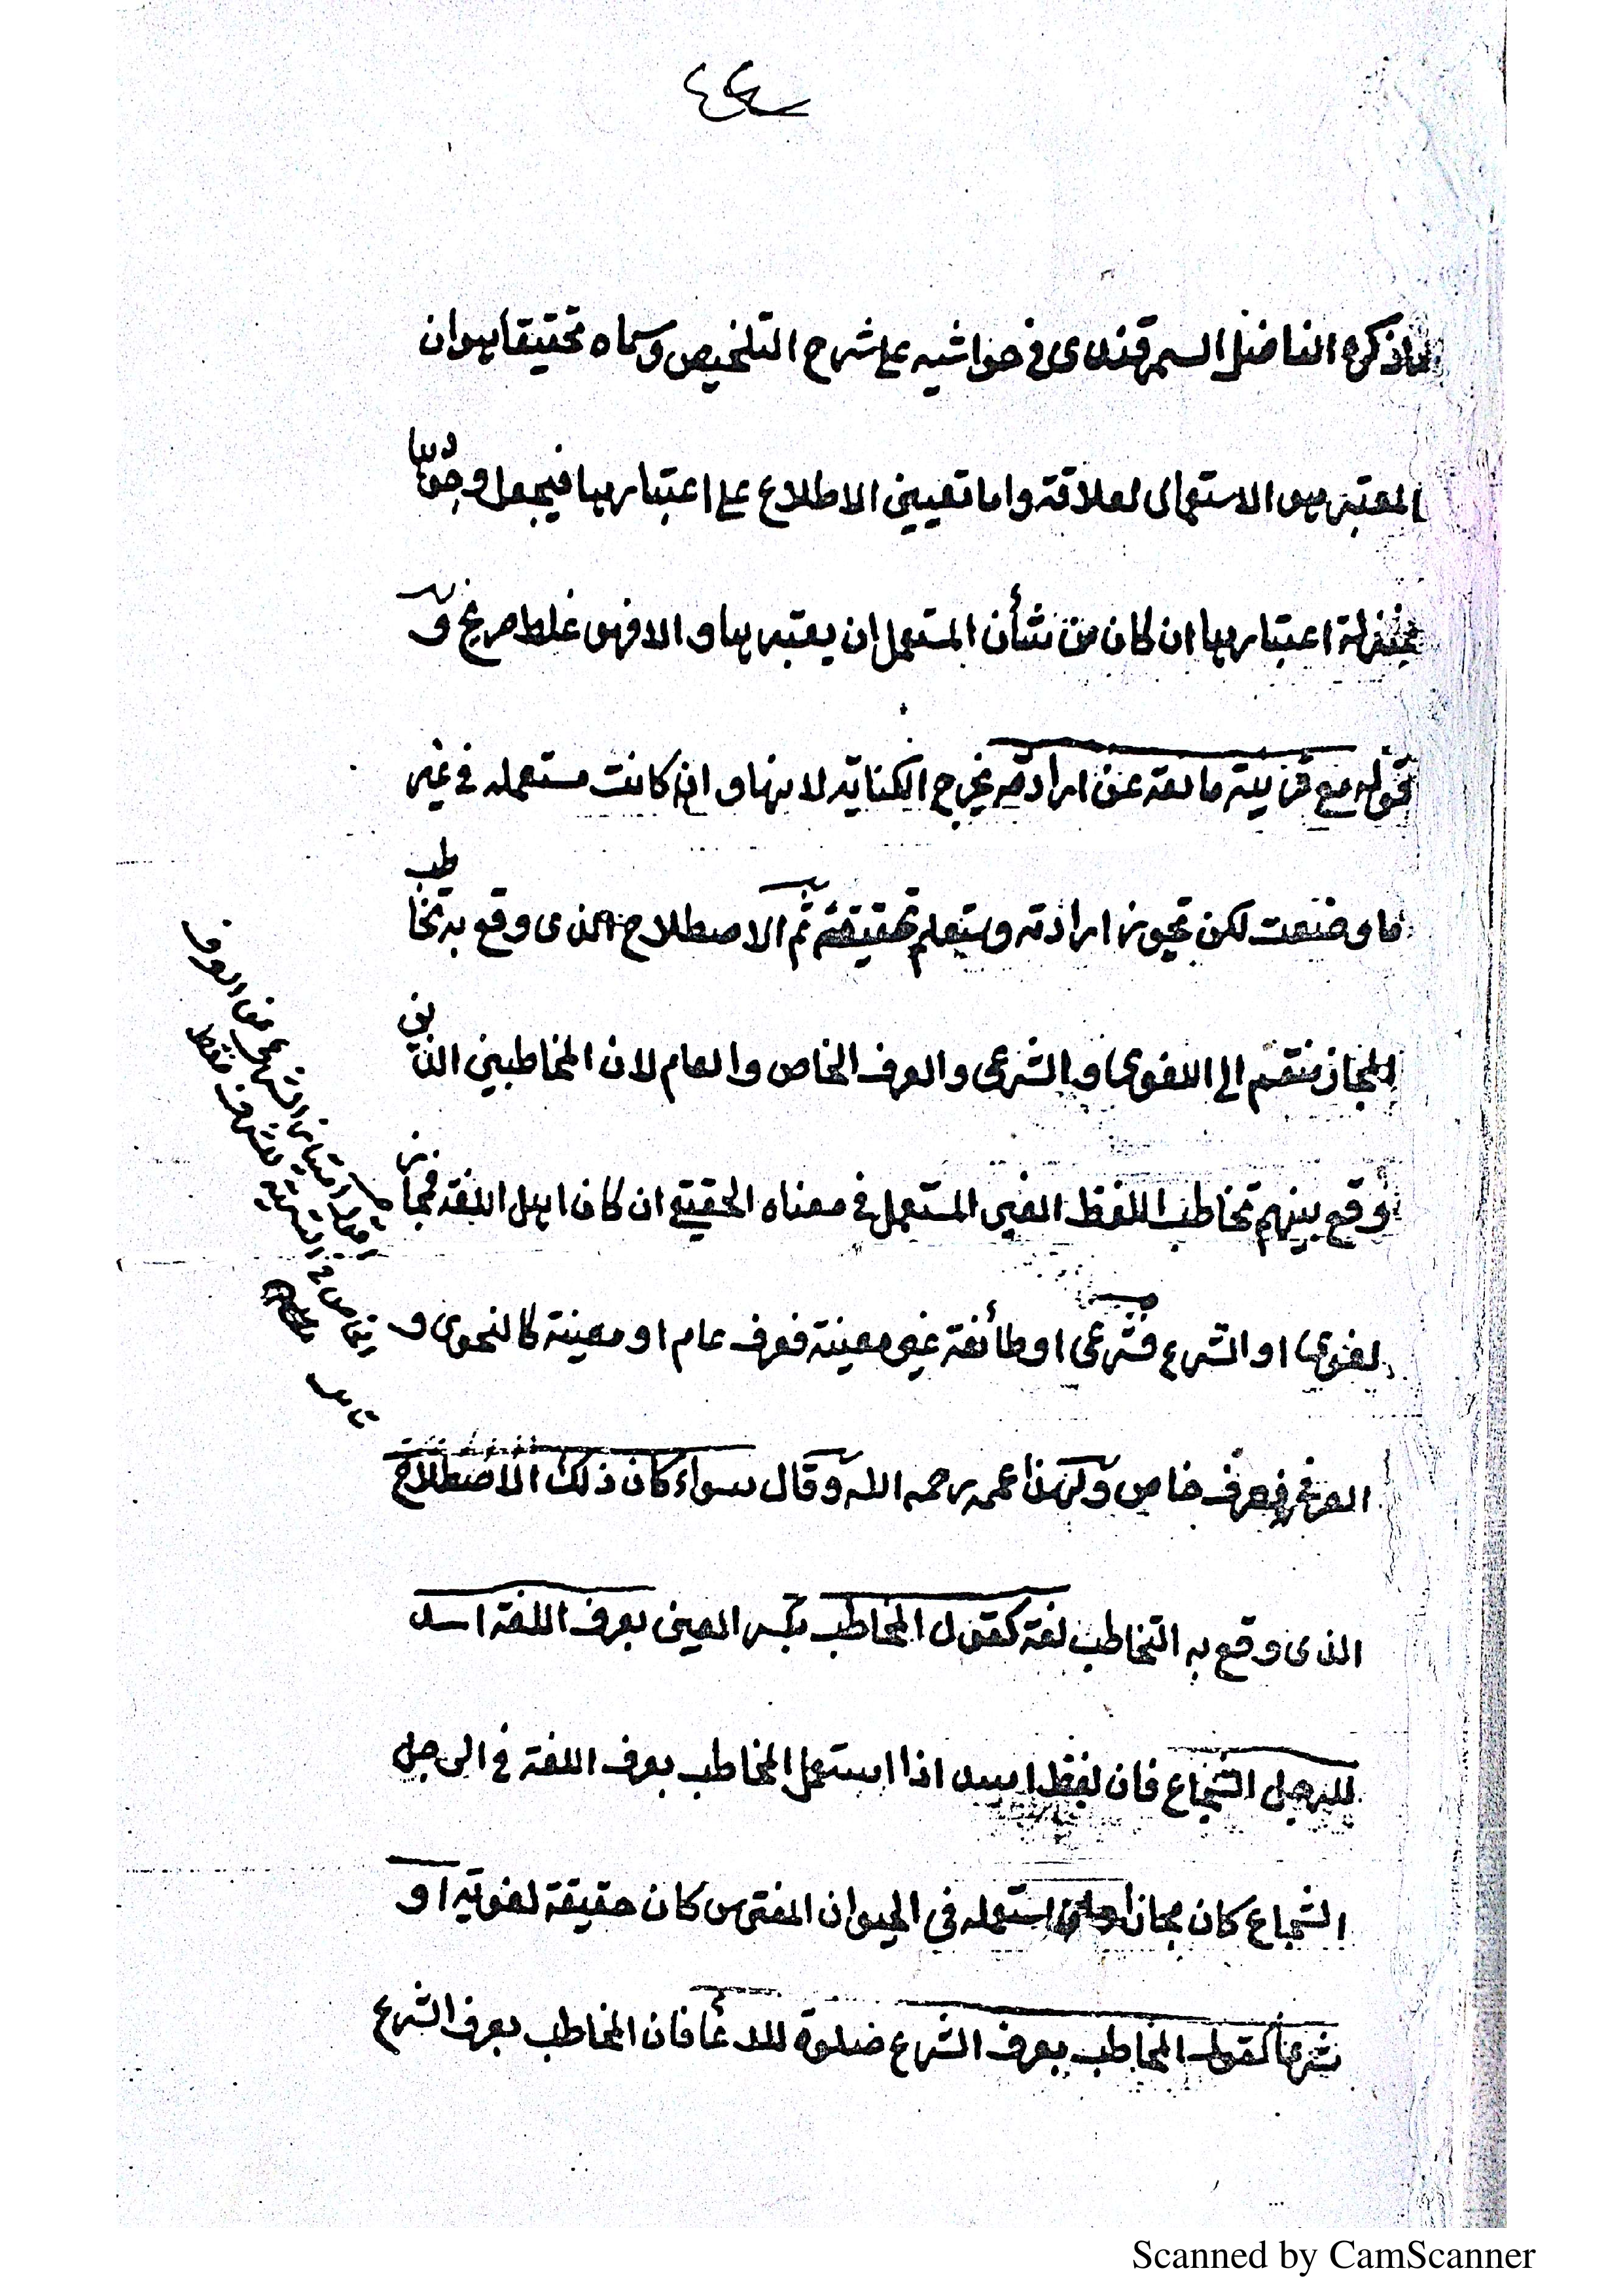 ماذكره الفاضل السمرقندى فى حواشيه على شرح التلخيص وسماه تحقيقا هو ان
المعتبر هو الاستعمال لعلاقة واما تعيين الاطلاع على اعتبارها فيجعل وجودها
بمنزلة اعتبارها ان كان من شأن المستعمل ان يعتبرها والا فهو غلط صريح و
قوله مع قرينة مانعة عن ارادته يخرج الكناية لانها وان كانت مستعملة فى غير
ما وضعت لكن تجوز ارادته وستعلم تحقيقه ثم الاصطلاح الذى وقع به تخاطب
المجاز منقسم الى اللغوى والشرعى والعرف الخاص والعام لان المخاطبين الذين
وقع بينهم تخاطب اللفظ الغير المستعمل فى معناه الحقيقى ان كان اهل اللغة فمجاز
لغوى او الشرع فشرعى او طائفة غير معينة فعرف عام او معينة كالنحوى و
فعرف خاص ولهذا عممه رحمه الله وقال سواء كان ذلك الاصطلاح
الذى وقع به التخاطب لغة كقول المخاطب بكسر العين بعرف اللغة اسد
للرجل الشجاع فان لفظ اسد اذا استعمل المخاطب بعرف اللغة فى الرجل
الشجاع كان مجازا استعمله فى الحيوان المفترس كان حقيقة لغوية او
شرعا كقول المخاطب بعرف الشرع صلوة للدعا فان المخاطب بعرف الشرع
Scanned by CamScanner